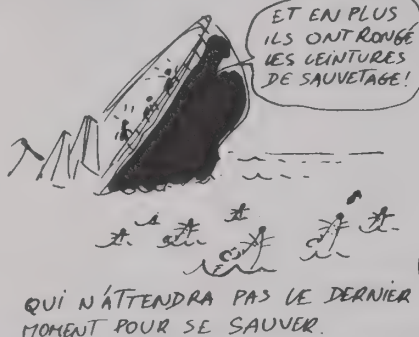 ET EN PLUS
ILS ONT RONGÉ
LES CEINTURES
DE SAUVETAGE!
QUI N'ATTENDRA PAS LE DERNIER
MOMENT POUR SE SAUVER.